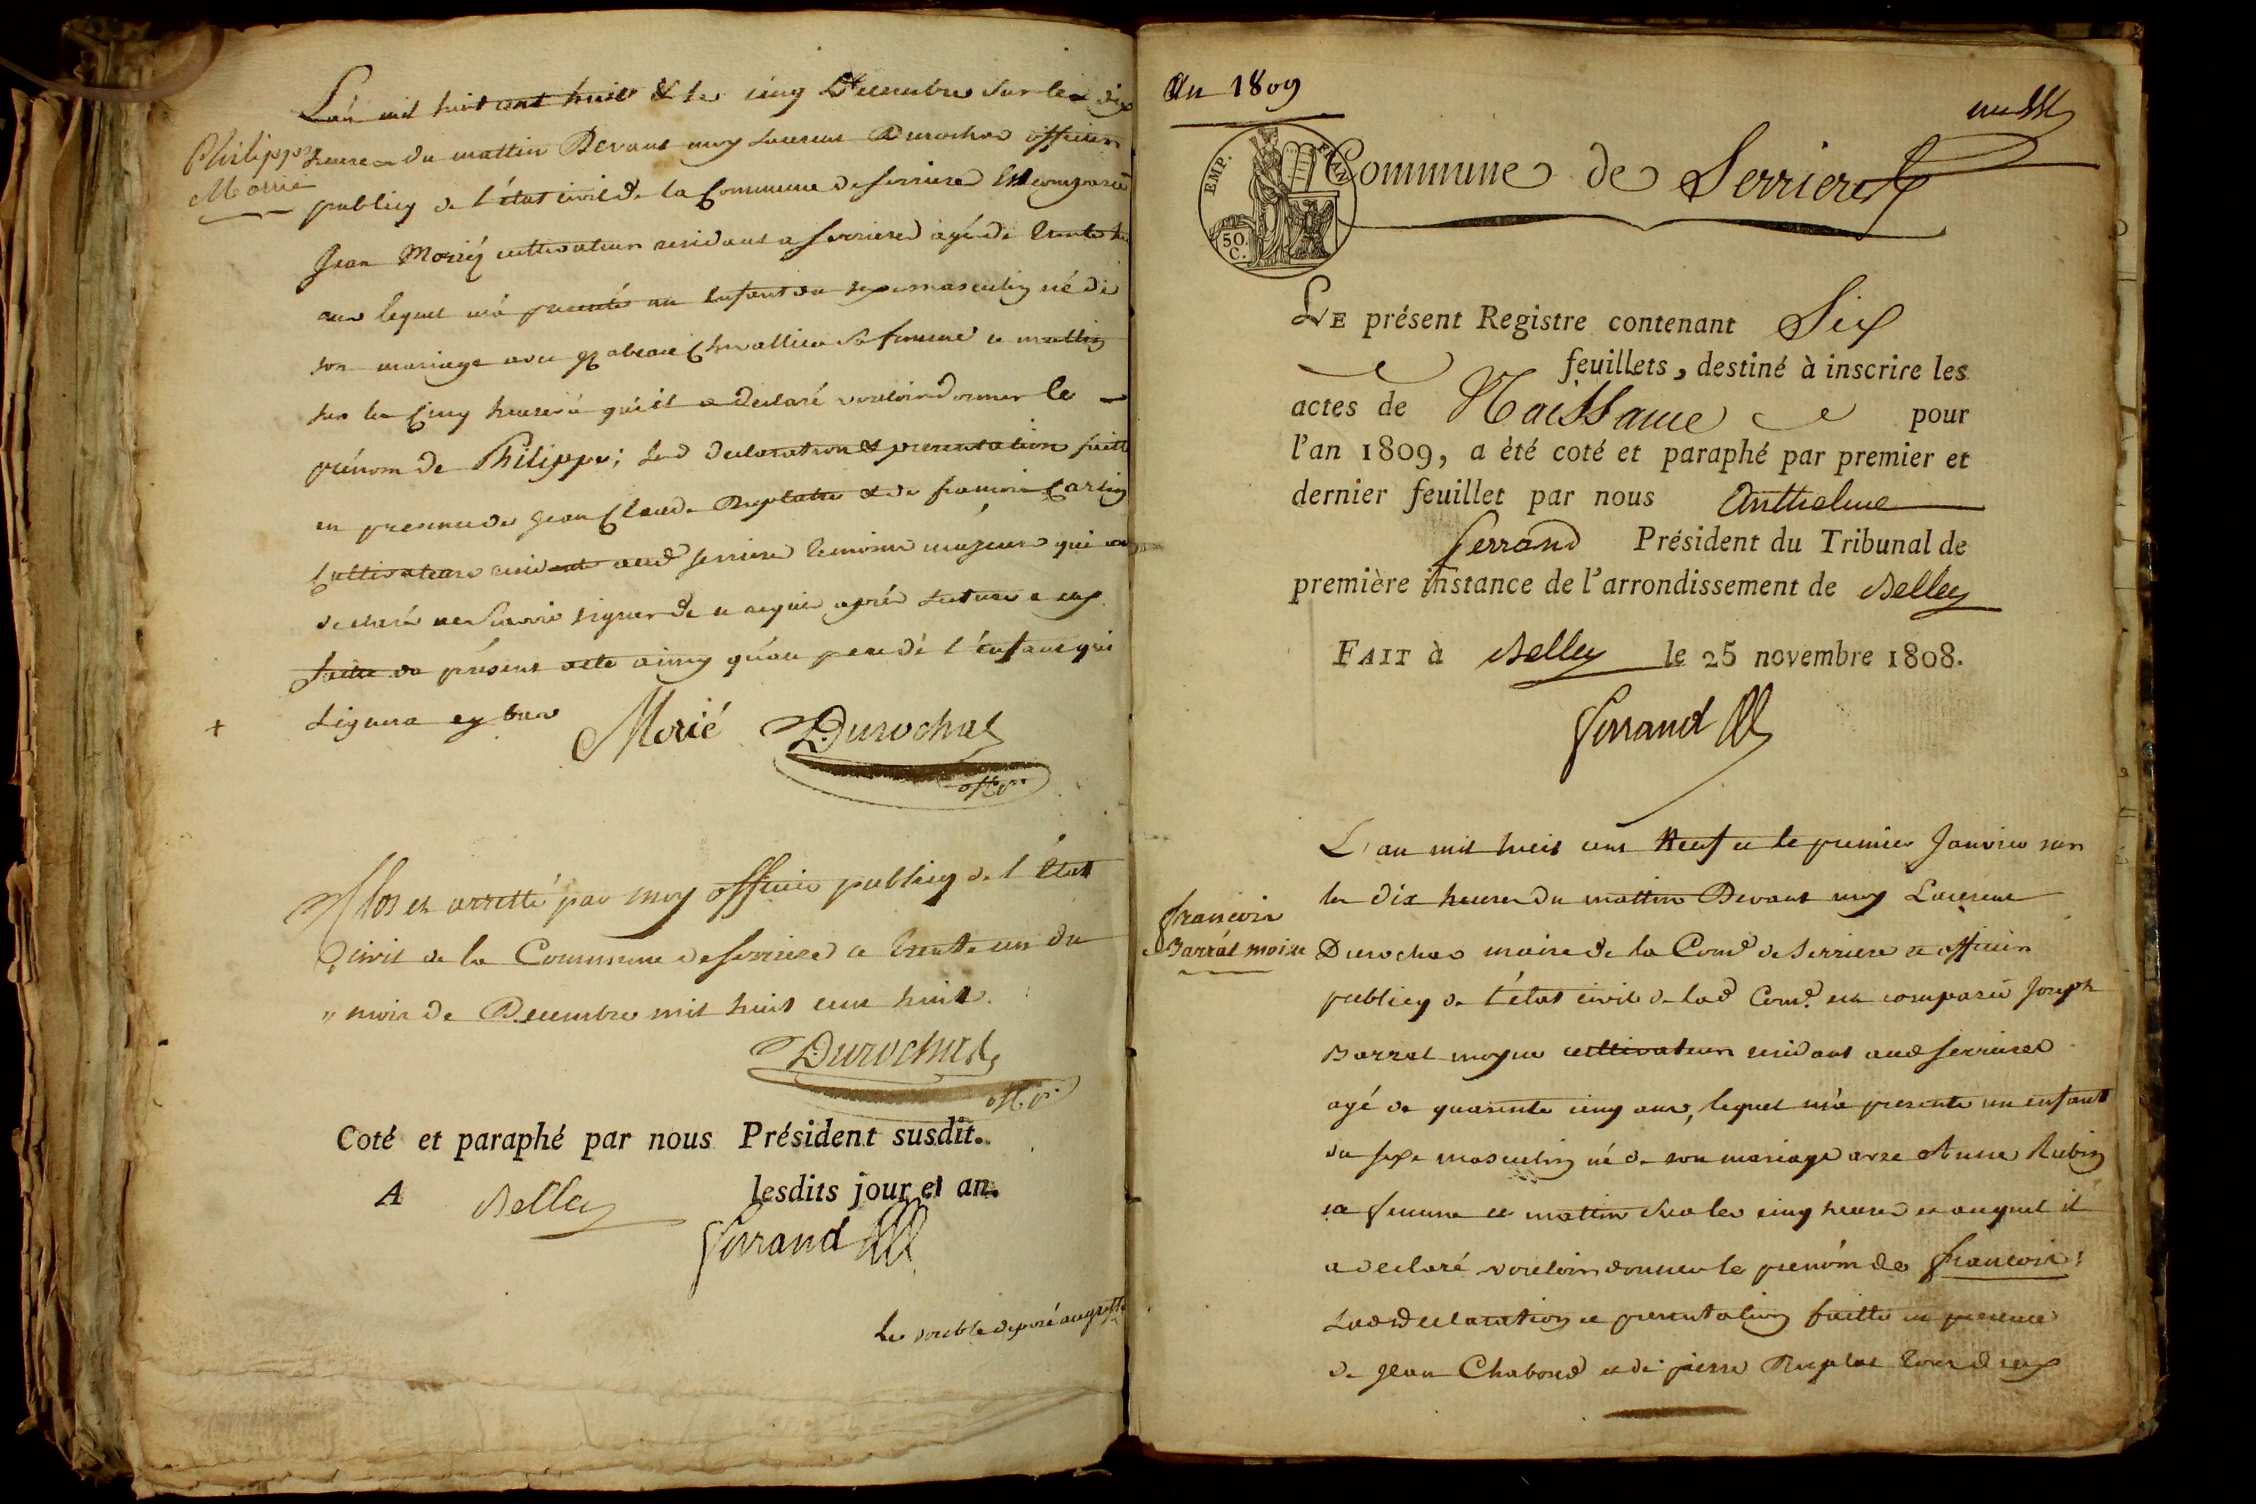 L'an mil huit cent huit & le cinq Decembre sur les dix
Philippe
Morié
heures du mattin Devant moy Laurent Durochat officier
publicq de l'état civil de la Commune de serrieres Est comparu
Jean Moriéz cultivateur residant a serrieres agé de trente
ans lequel m'a presenté un Enfant du sexe masculin né de
son mariage avec Chevallier sa femme ce mattin
sur les Cinq heures à qu'il a declaré vouloir donner le
prénom de Philippe; Lesd declaration & presentation faitte
en presence de Jean Claude Ruplatte & de francois Carlin
Cultivateurs residents aud serrieres temoins majeurs qui ont
declaré ne savoir signer de ce requis aprés lecture a eux
faitte du présent acte ainsy qu'au pere de l'énfant qui
signera ey bas
+
Morié Durochat
off.er
Clos et arretté par moy officier publicq de l'Etat
Civil de la Commune de serrieres ce trente un du
" mois de Decembre mil huit cent huit.
Durochat
off.er
Coté et paraphé par nous Président susdit.
A Belley lesdits jour et an.
Ferrand
Le double déposé au greffe
An 1809
EMP. FRAN.
50. C.
Commune de Serrieres
LE présent Registre contenant Six
feuillets, destiné à inscrire les
actes de Naissance pour
l'an 1809, a été coté et paraphé par premier et
dernier feuillet par nous Anthelme
Ferrand Président du Tribunal de
première instance de l'arrondissement de Belley
FAIT à Belley le 25 novembre 1808.
Ferrand
L'an mil huit cent Neuf et le premier Janvier sur
les dix heures du mattin Devant moy Laurent
francois
Barrat moine
Durochat maire de la Com.e de Serrieres et officier
publicq de l'état civil de lad Com.e est comparu Joseph
Barrat moyne cultivateur residant aud serrieres
agé de quarente cinq ans, lequel m'a presente un enfant
du sexe masculin né de son mariage avec Anne Rubin
sa femme ce mattin sur les cinq heures et auquel il
a declaré vouloir donner le prenóm de francois:
Lesd declaration et presentation faitte en presence
de Jean Chaboud et de pierre Ruplat tous deux